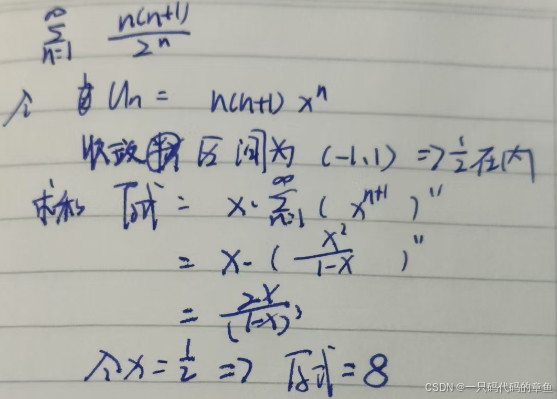 ∞
∑ n(n+1)/2^n
n=1
令 Un = n(n+1) x^n
收敛区间为 (-1,1) => 1/2在内
求和 原式 = x·∑_{n=1}^{∞} ( x^{n+1} )''
= x·( x^2/(1-x) )''
= 2x/(1-x)^3
令x = 1/2 => 原式 = 8
CSDN @一只码代码的章鱼